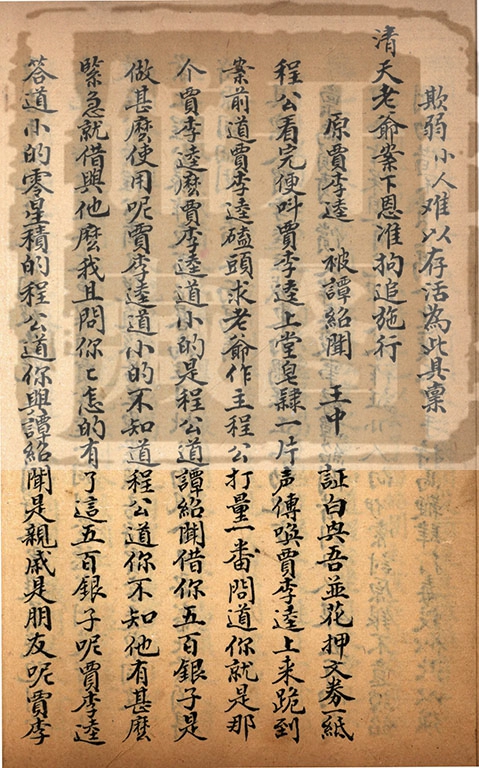 欺弱小人难以存活為此具禀
清天老爺案下恩准拘追施行
原賈李逵 被譚紹聞 王中 証白與吾並花押文券一紙
程公看完便呌賈李逵上堂皂隸一片声傳喚賈李逵上来跪到
案前道賈李逵磕頭求老爺作主程公打量一番問道你就是那
个賈李逵麽賈李逵道小的是程公道譚紹聞借你五百銀子是
做甚麽使用呢賈李逵道小的不知道程公道你不知他有甚麽
緊急就借與他麽我且問你〻怎的有了這五百銀子呢賈李逵
答道小的零星積的程公道你與譚紹聞是親戚是朋友呢賈李